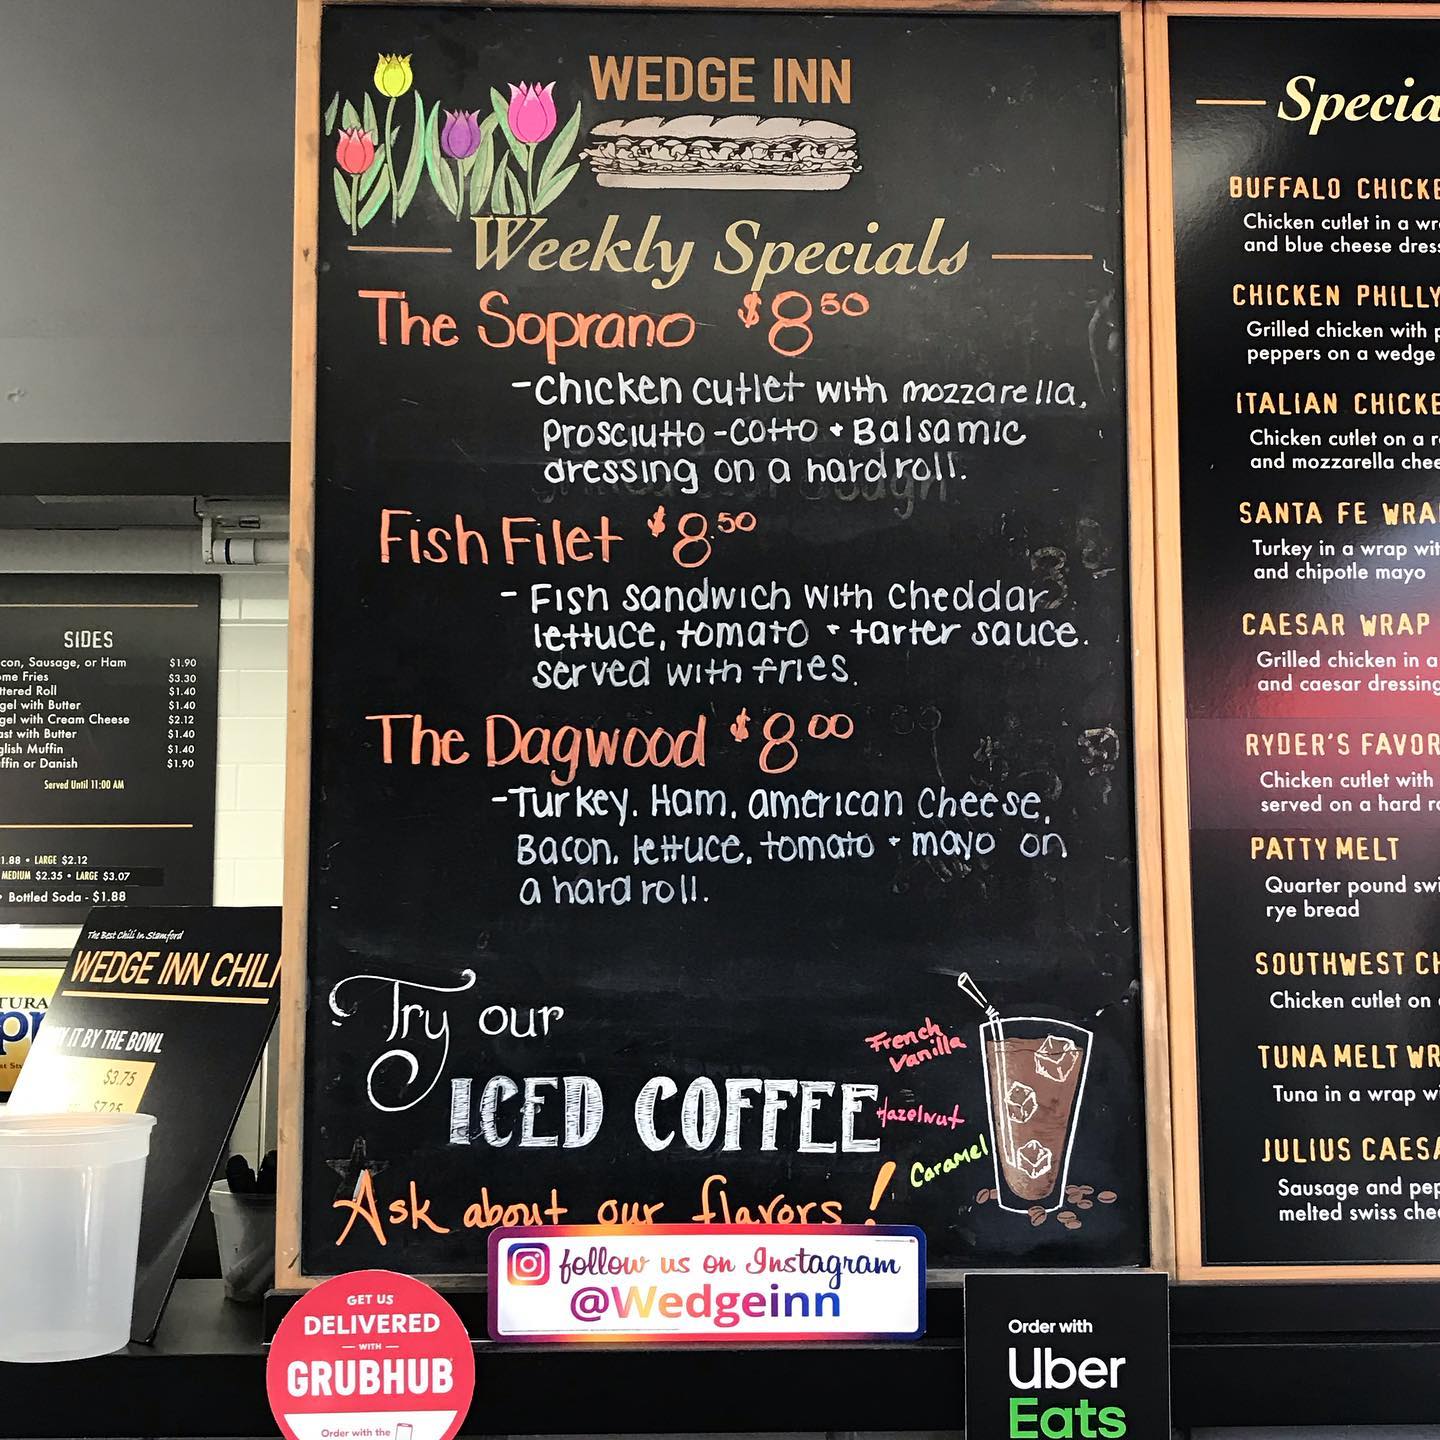 WEDGE INN
Weekly Specials
The Soprano $8.50
-Chicken cutlet with mozzarella,
Prosciutto-Cotto + Balsamic
dressing on a hard roll.
Fish Filet $8.50
- Fish sandwich with Cheddar
lettuce, tomato + tarter sauce.
served with fries.
The Dagwood $8.00
-Turkey, Ham, american cheese,
Bacon, lettuce, tomato + mayo on
a hard roll.
Try our
ICED COFFEE
French
Vanilla
Hazelnut
Caramel
Ask about our flavors!
follow us on Instagram
@Wedgeinn
GET US
DELIVERED
WITH
GRUBHUB
Order with the
Order with
Uber
Eats
SIDES
Sausage, or Ham $1.90
Fries $3.30
Roll $1.40
with Butter $1.40
with Cream Cheese $2.12
with Butter $1.40
Muffin $1.40
or Danish $1.90
Served Until 11:00 AM
1.88 • LARGE $2.12
MEDIUM $2.35 • LARGE $3.07
• Bottled Soda - $1.88
The Best Chili In Stamford
WEDGE INN CHILI
IT BY THE BOWL
$3.75
$7.25
Specia
BUFFALO CHICKE
Chicken cutlet in a wr
and blue cheese dress
CHICKEN PHILLY
Grilled chicken with p
peppers on a wedge
ITALIAN CHICKE
Chicken cutlet on a r
and mozzarella chee
SANTA FE WRA
Turkey in a wrap wit
and chipotle mayo
CAESAR WRAP
Grilled chicken in a
and caesar dressing
RYDER'S FAVOR
Chicken cutlet with
served on a hard r
PATTY MELT
Quarter pound swi
rye bread
SOUTHWEST CH
Chicken cutlet on
TUNA MELT WR
Tuna in a wrap wi
JULIUS CAESA
Sausage and pep
melted swiss chee